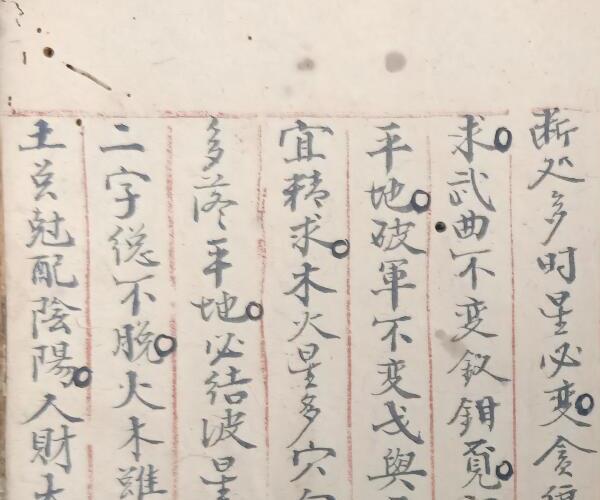 断処多时星必变。貪
求。武曲不变釵鉗覔。
平地。破軍不变戈與
宜精求。木火星多穴
多落平地。必结波星
二字総不脱。火木雖
土兑尅配陰陽。人財